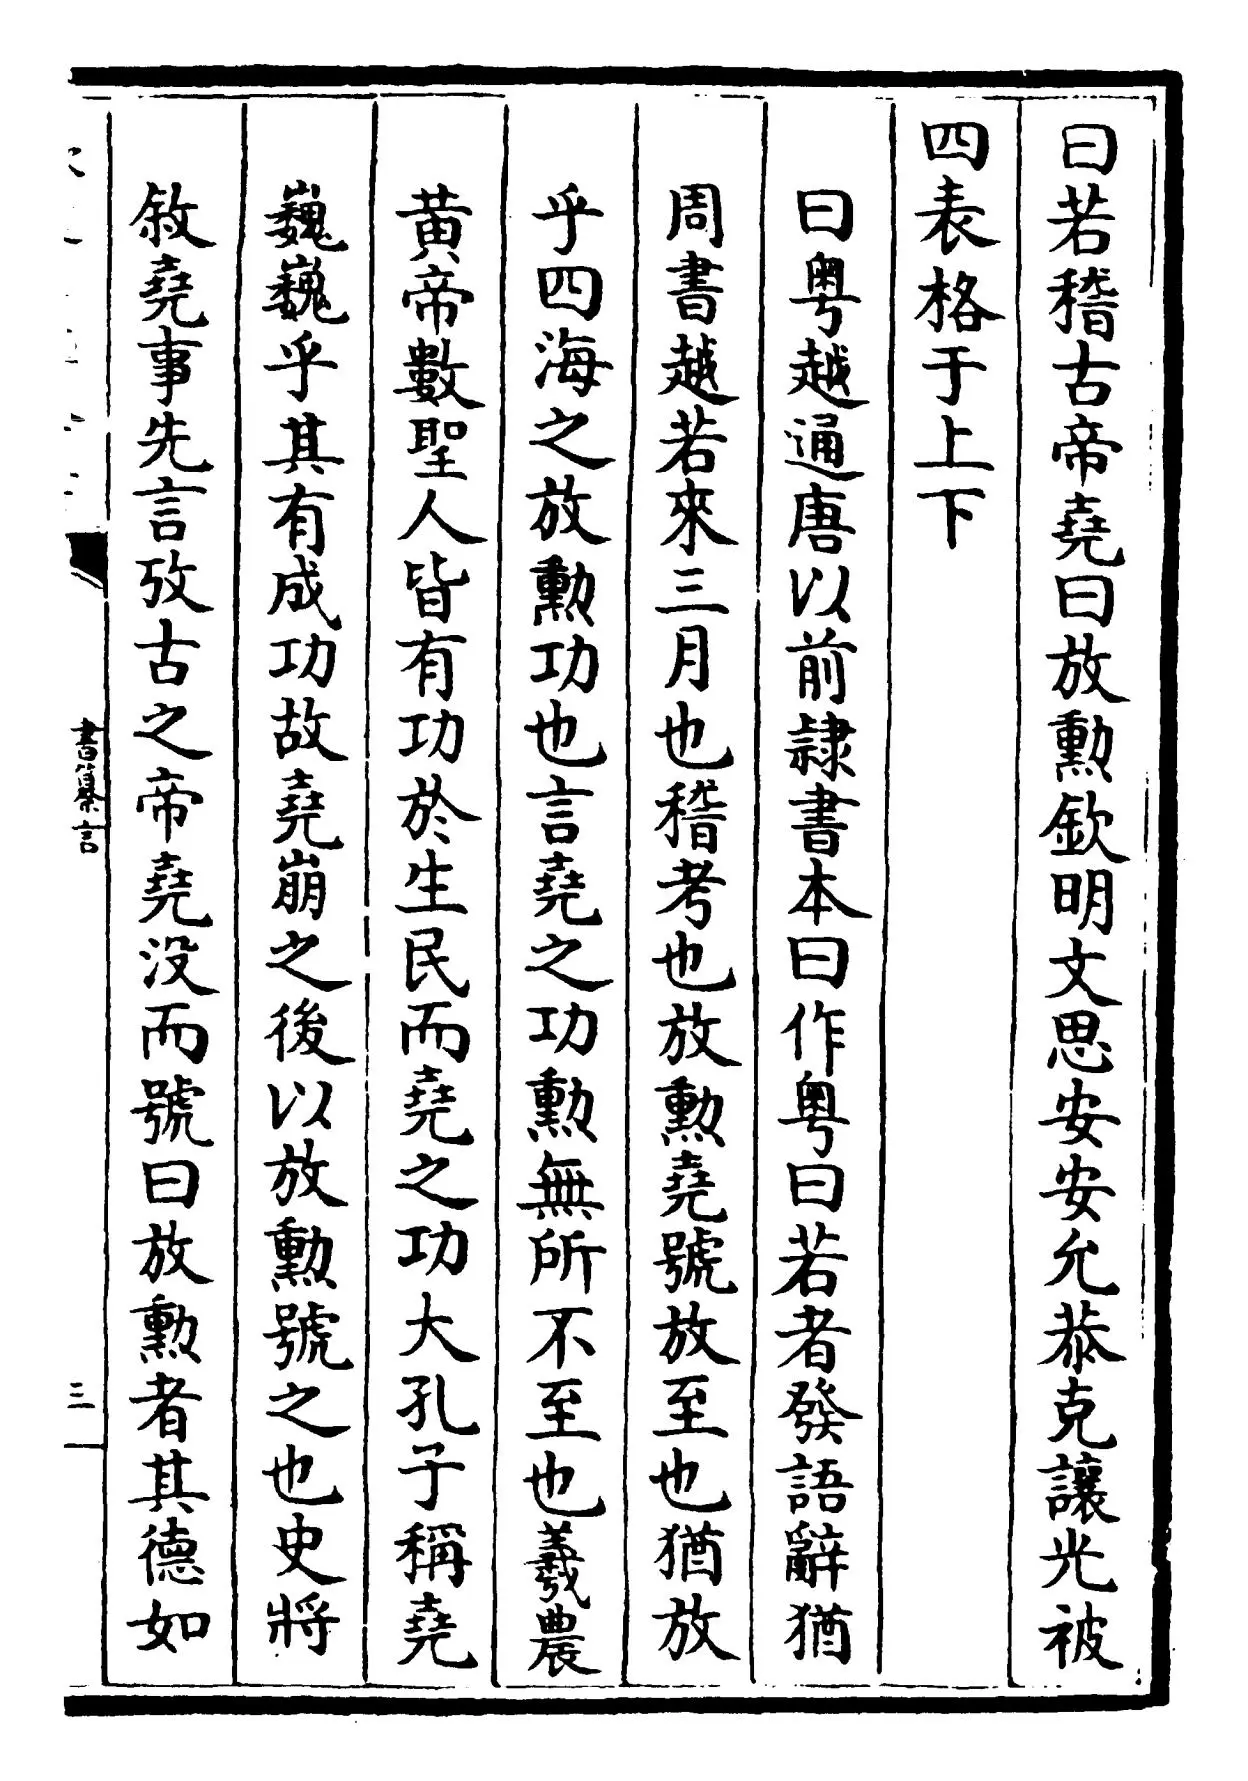 曰若稽古帝堯曰放勳欽明文思安安允恭克讓光被
四表格于上下
曰粤越通唐以前隷書本曰作粤曰若者發語辭猶
周書越若來三月也稽考也放勳堯號放至也猶放
乎四海之放勳功也言堯之功勳無所不至也羲農
黄帝數聖人皆有功於生民而堯之功大孔子稱堯
巍巍乎其有成功故堯崩之後以放勳號之也史將
敘堯事先言攷古之帝堯没而號曰放勳者其德如
書纂言
三